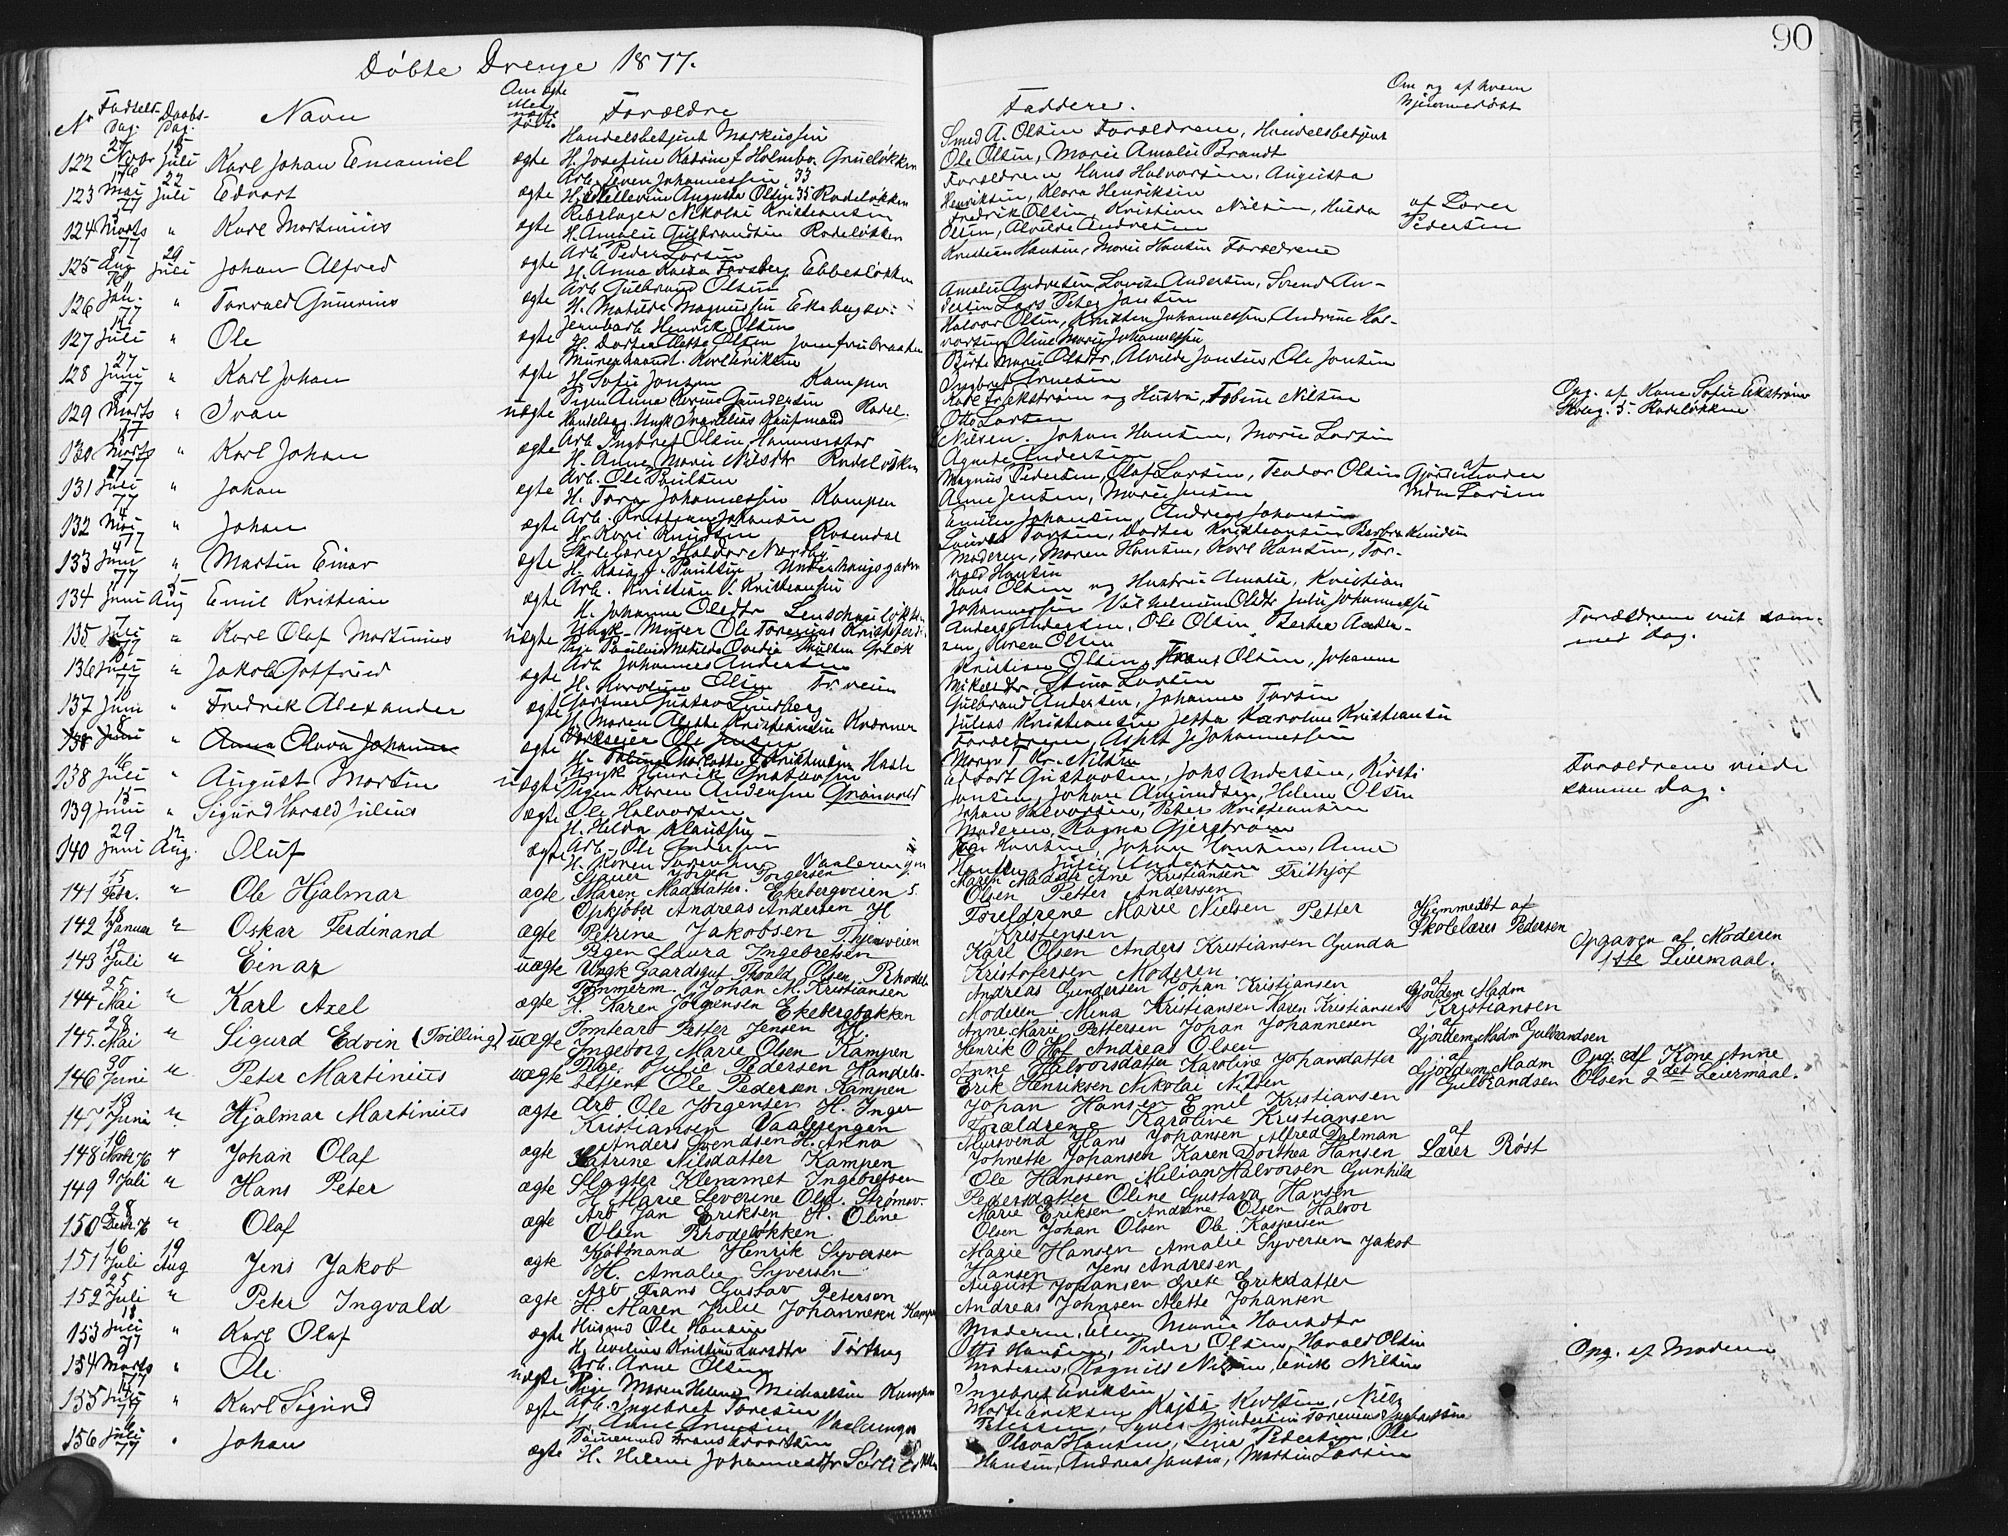 90
Döbte Drenge 1877.
No Fødsels-Dag. Daabs-Dag. Navn Om ægte eller uægte født. Forældre Faddere. Om og af hvem hjemmedöbt
122 27 Novbr 76 15 Juli Karl Johan Emanuel ægte Handelsbetjent Markussen H. Josefine Katrine f. Holmbo. Grueløkken Smed A. Olsen Forældrene, Handelsbetjent Ole Olsen, Marie Amalie Brandt
123 Mai 77 22 Juli Edvart ægte Arb. Even Johannessen 33 H. Ellevine Augusta Olsen 35 Rodeløkken Forældrene Hans Halvorsen, Augusta Henriksen, Klara Henriksen
124 Marts 77 " Karl Martinius ægte Rebslager Nikolai Kristiansen H. Amalie Gulbrandsen Rodeløkken Fredrik Olsen, Kristian Nilsen, Hulda Olsen, Alvilde Andresen af Lærer Pedersen
125 Aug 29 Juli Johan Alfred ægte Arb. Peder Larsen H. Anna Kaisa Forsberg Ebbesløkken Kristian Hansen, Marie Hansen Forældrene
126 Jan. 77 " Torvald Gunerius ægte Arb. Gulbrand Olsen H. Matilde Magnussen Ekebergv. Amalie Andresen, Lovise Andersen, Svend Andersen Lars Peter Jansen
127 Juli " Ole ægte Jernbarb. Henrik Olsen H. Dortea Olsen Jomfrubraaten Halvor Olsen, Knut Johannessen, Andrine Halvorsen Oline Marie Johannessen
128 27 Juni 77 " Karl Johan ægte Murerhaandt. Karl Eriksen H. Sofie Jonsen Kampen Birte Marie Olsdtr, Alvilde Jansen, Ole Jonsen Ingebret Arnesen
129 Marts 77 " Ivan uægte Pigen Anna Karine Gundersen Rodel. Handelsag. Ungk. Kaufmand Karl Ekstrøm og Hustru, Tobine Nilsen Otto Larsen Opg. af Kone Sofie Ekstrøm Rodeløkken
130 Marts 77 " Karl Johan ægte Arb. Ingebret Olsen Hammerstad H. Anne Marie Nilsdtr Rodeløkken Nilsen. Johan Hansen, Marie Larsen Agnete Andersen
131 Juli 77 " Johan ægte Arb. Ole Paulsen H. Tora Johannessen Kampen Magnus Pedersen, Olaf Larsen, Teodor Olsen Anne Jensen, Marie Jensen af Gjordemoder Mdm Larsen
132 Mai 77 " Johan ægte Arb. Kristian Johansen H. Kari Knudsen Rosendal Emilie Johansen, Andreas Johansen Lovise Larsen, Dortea Kristiansen Barbra Knudsen
133 Juni 77 " Martin Einar ægte Skolelærer Haldor Nordby H. Kaia f. Paulsen, Underhaugsgaden Moderen, Maren Hansen, Karl Hansen, Torvald Hansen
134 Juni 5 Aug Emil Kristian ægte Arb. Kristian O. Kristiansen H. Johanne Olsdtr Lenschauløkken Hans Olsen og Hustru Amalie, Kristian Johannessen Vilhelmine Olsdtr Julie Johannessen
135 7 Juli 77 " Karl Olaf Martinius uægte Ungk. Murer Ole Torenius Kristofersen Pige Paulsen Grl. Anders Andersen, Ole Olsen Dortea Andersen, Karen Olsen Forældrene viet samme dag.
136 Juli 77 " Jakob Gotfried ægte Arb. Johannes Andersen H. Karoline Olsen Kristian Olsen, Frans Olsen, Johanne Mikelsdtr, Stina Larsen
137 Juni " Fredrik Alexander ægte Gartner Gustav Lindberg H. Maren Alette Kristiansen Kværner Gulbrand Andersen, Johanne Larsen Julius Kristiansen Jetta Karoline Kristiansen
138 8 Juni " Anna Olava Johanne ægte Verkseier Ole Jensen H. Charlotte J. Kristiansen Hasle Forældrene, Johannessen Maren Kr. Nilsen
138 16 Juli " August Martin uægte Ungk Henrik Gustavsen Pigen Karen Andersen Grønvold Edvart Gustavsen, Johs Andersen, Kirsti Jonsen, Johan Amundsen, Helene Olsen Forældrene viede samme dag.
139 15 Juni " Sigurd Harald Julius ægte Ole Halvorsen H. Hilda Klausen Johan Halvorsen, Peter Kristiansen Moderen, Ragna Gjerstrøm
140 29 Juni 12 Aug. Oluf ægte Arb. Ole Andersen H. Karen Vaalerengen Hansen, Johan Hansen, Anne Hansen, Julie Andersen
141 15 Febr. " Ole Hjalmar ægte Stauer Jørgen Torgersen Maren Madsdatter. Ekebergveien 5. Maren Madsen Ane Kristiansen Frithjof Olsen Petter Anderssen
142 18 Januar " Oskar Ferdinand ægte Opkjøber Andreas Andersen H. Petrine Jakobsen Thjensveien Foreldrene Marie Nielsen Petter Kristensen Hjemmedöbt af Skolelærer Pedersen
143 12 Juli " Einar uægte Pigen Laura Ingebretsen Ungk Gaardsgut Thvald Olsen, Rhodel. Karl Olsen Anders Kristiansen Gunda Kristofersen Moderen Opgaven af Moderen 1ste Leiermaal.
144 25 Mai " Karl Axel ægte Tømmerm. Johan M. Kristiansen H. Karen Jørgensen Ekebergbakken Andreas Gundersen Johan Kristiansen Moderen Mina Kristiansen Karen Kristiansen af Gjordem Madm Kristiansen
145. 28 Mai " Sigurd Edvin (Tvilling) uægte Tomtearb Petter Jensen H. Ingeborg Marie Olsen Kampen Anne Marie Pettersen Johan Johannesen Henrik O Hof Andreas Olsen af Gjordem Madm Gulbrandsen
146 30 Juni " Peter Martinius uægte Pige Julie Pedersen Handelsbetjent Ole Pedersen Kampen Anne Halvorsdatter Karoline Johansdatter Erik Henriksen Nikolai Nilsen af Gjordem Madm Gulbrandsen Opg. af Kone Anne Olsen 2det Leiermaal.
147 13 Juni " Hjalmar Martinius ægte Arb Ole Jørgensen H. Inger Kristiansen Vaalerengen Johan Hansen Emil Kristiansen Forældrene Karoline Kristiansen
148 16 Novbr 76 " Johan Olaf ægte Anders Svendsen H. Anna Katrine Nilsdatter Kampen Mursvend Hans Johansen Alfred Dalman Johnette Johansen Karen Dorthea Hansen af Lærer Røst
149 9 Juli " Hans Peter ægte Slagter Klemmet Ingebretsen H. Marie Severine Olsd. Strømsv. Ole Hanssen Milian Halvorsen Gunhild Pedersdatter Oline Gustava Hansen
150 28 Decbr 76 " Olaf ægte Arb Jan Eriksen H. Oline Olsen Rhodeløkken Marie Eriksen Andrine Olsen Halvor Olsen Johan Olsen Ole Kaspersen
151 16 Juli 19 Aug Jens Jakob ægte Kjøbmand Henrik Syversen H. Amalie Syversen Marie Hansen Amalie Syversen Jakob Hansen Jens Andresen
152 25 Juli " Peter Ingvald ægte Arb Frans Gustav Peterson H. Maren Julie Johannesen Kampen August Johansen Grete Eriksdatter Andreas Johnsen Alette Johansen
153 18 Juli 77 " Karl Olaf ægte Husmd Ole Hansen H. Eveline Kristine Larsdtr Tørthug Moderen, Elen Marie Hansdtr Ole Hansen, Peder Olsen, Harald Olsen
154 9 Marts 77 " Ole uægte Arb. Arne Olsen Pige Maren Helene Michaelsen Kampen Moderen, Ragnild Nilsen, Erik Nilsen Ingebret Eriksen Opg. af Moderen
155 14 Juli 77 " Karl Sigurd ægte Arb. Ingebret Toresen H. Anne Arnesen Vaalerengen Marte Eriksen Kajsa Karlsen, Nils Petersen, Synes Gundersen Torenius Ingebretsen
156 6 Juli 77 " Johan ægte Tømmermd Frans Edvartsen H. Helene Johannesdtr Sørli Olava Hansen, Lina Pedersen, Ole Hansen, Andreas Jansen, Martin Larsen